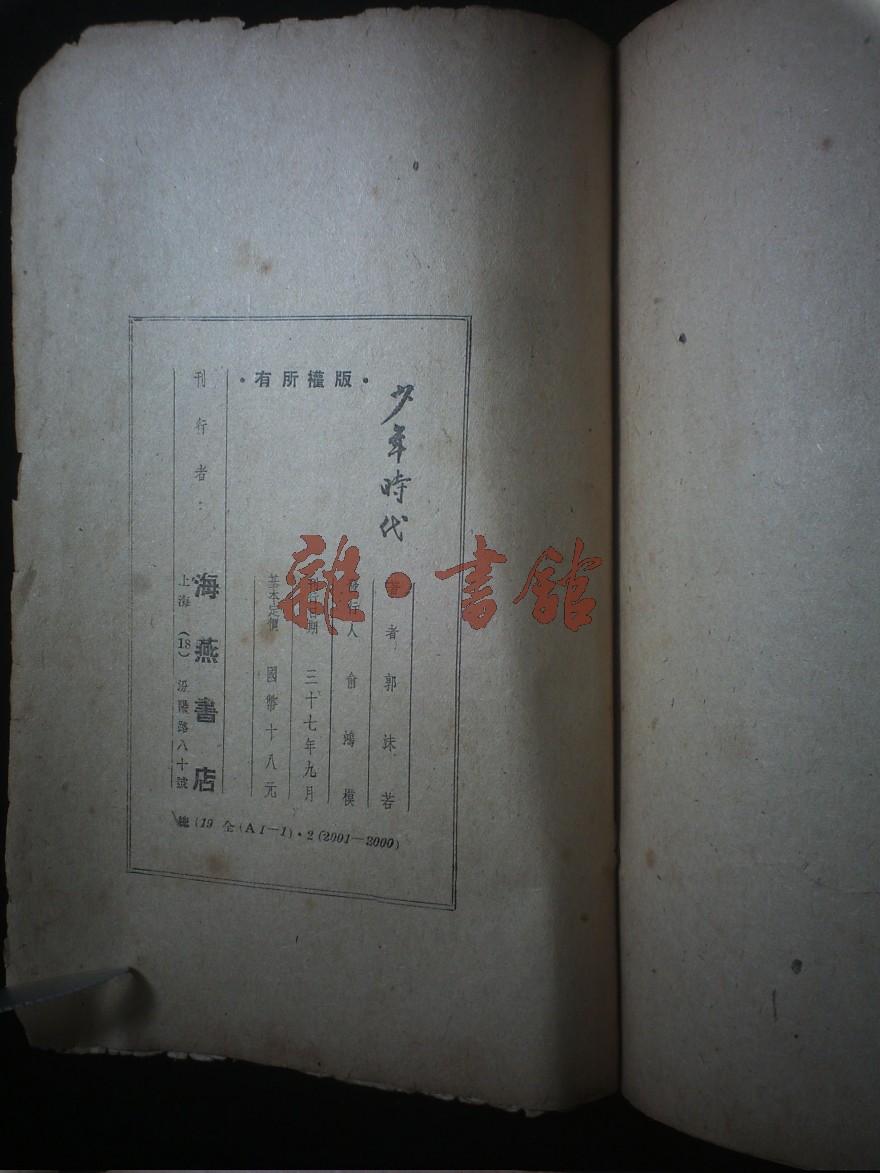 ·版權所有·
少年時代
著者 郭沫若
發行人 俞鴻模
日期 三十七年九月
基本定價 國幣十八元
刊行者：海燕書店
上海(18)汾陽路八十號
總(19 全(A1—1)·2(2001—2000)
雜·書館